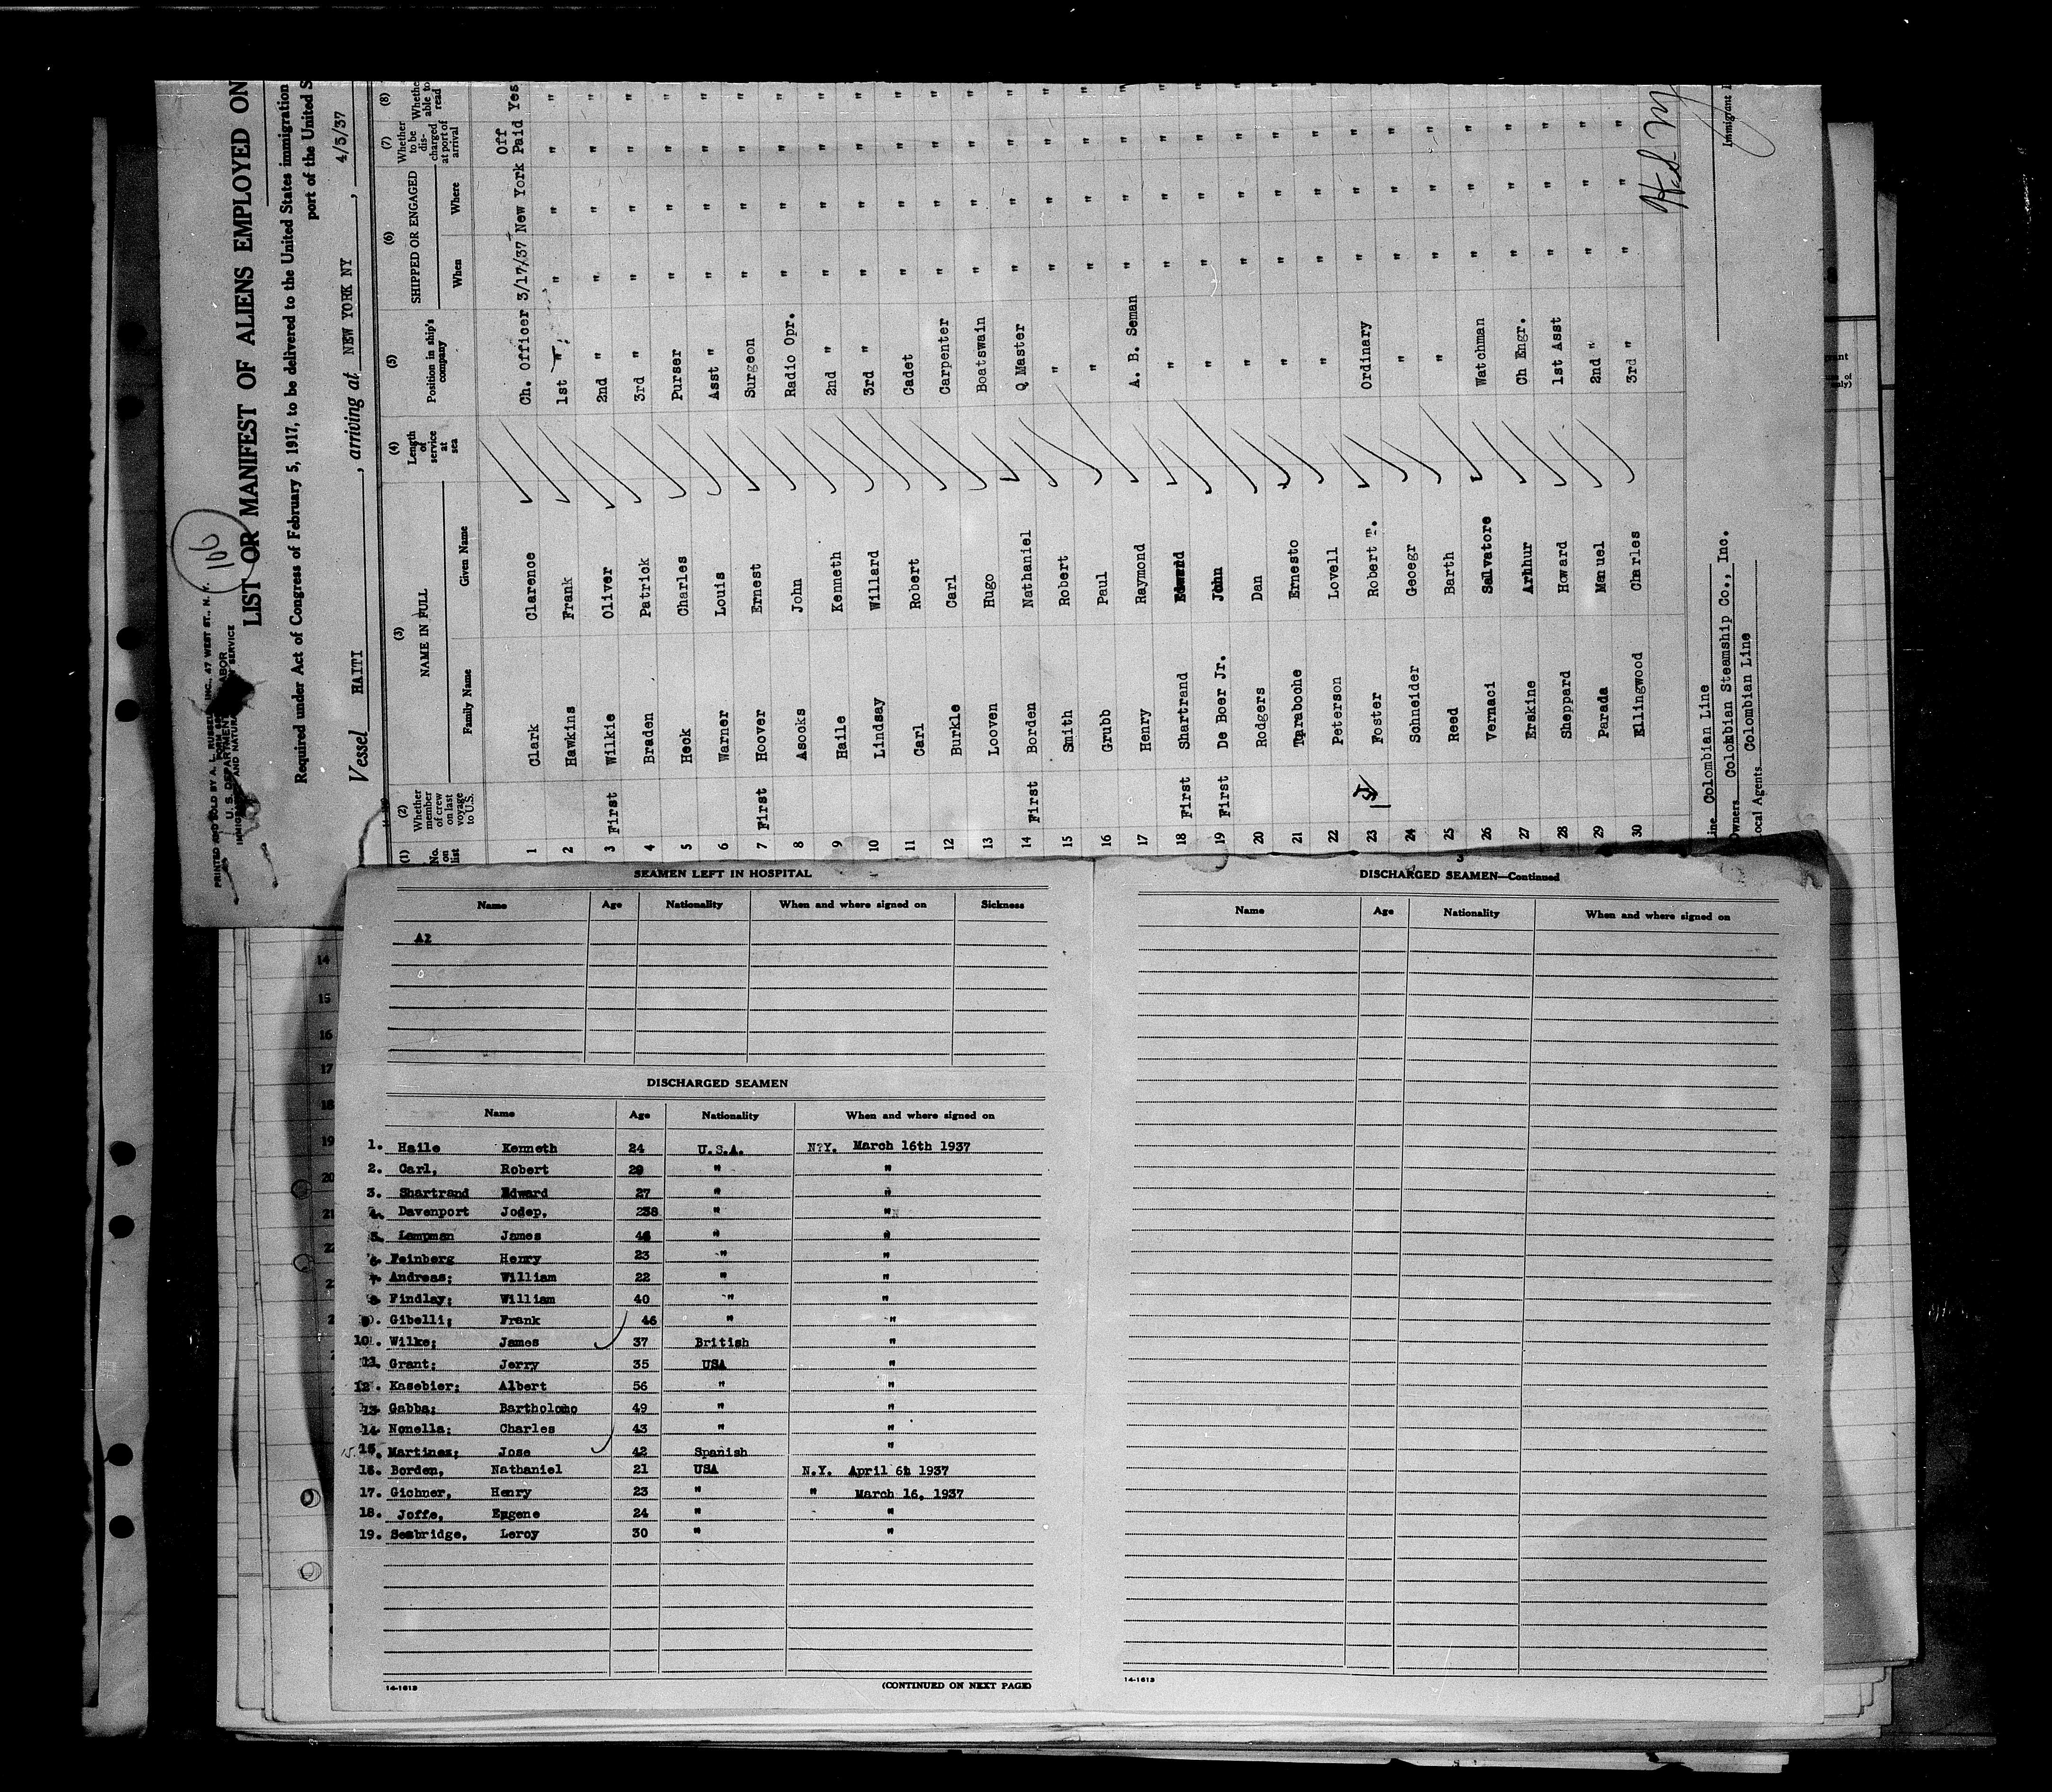 PRINTED AND SOLD BY A. L. RUSSELL, INC., 47 WEST ST., N. Y.
U. S. DEPARTMENT LABOR
166
LIST OR MANIFEST OF ALIENS EMPLOYED ON
Required under Act of Congress of February 5, 1917, to be delivered to the United States immigration
port of the United S
Vessel HAITI , arriving at NEW YORK NY , 4/5/37
(1) No. on list (2) Whether member of crew on last voyage to U.S. (3) NAME IN FULL Family Name Given Name (4) Length of service at sea (5) Position in ship's company (6) SHIPPED OR ENGAGED When Where (7) Whether to be discharged at port of arrival (8) Whether able to read
1 Clark Clarence Ch. Officer 3/17/37 New York Paid Off Yes
2 Hawkins Frank 1st " " " " "
3 First Wilkie Oliver 2nd " " " " "
4 Braden Patrick 3rd " " " " "
5 Heck Charles Purser " " " "
6 Warner Louis Asst " " " " "
7 First Hoover Ernest Surgeon " " " "
8 Asocks John Radio Opr. " " " "
9 Haile Kenneth 2nd " " " " "
10 Lindsay Willard 3rd " " " " "
11 Carl Robert Cadet " " " "
12 Burkle Carl Carpenter " " " "
13 Looven Hugo Boatswain " " " "
14 First Borden Nathaniel Q Master " " " "
15 Smith Robert " " " " "
16 Grubb Paul " " " " "
17 Henry Raymond A. B. Seman " " " "
18 First Shartrand Edward " " " " "
19 First De Boer Jr. John " " " " "
20 Rodgers Dan " " " " "
21 Taraboche Ernesto " " " " "
22 Peterson Lovell " " " " "
23 Foster Robert T. Ordinary " " " "
24 Schneider Geoegr " " " " "
25 Reed Barth " " " " "
26 Vernaci Salvatore Watchman " " " "
27 Erskine Arhhur Ch Engr. " " " "
28 Sheppard Howard 1st Asst " " " "
29 Parada Manuel 2nd " " " " "
30 Ellingwood Charles 3rd " " " " "
ine Colombian Line
Owners Colombian Steamship Co., Inc.
Local Agents Colombian Line
Immigrant I
SEAMEN LEFT IN HOSPITAL
Name Age Nationality When and where signed on Sickness
DISCHARGED SEAMEN
Name Age Nationality When and where signed on
1. Haile Kenneth 24 U.S.A. N?Y. March 16th 1937
2. Carl, Robert 20 " "
3. Shartrand Edward 27 " "
4. Davenport Jodep. 238 " "
5. Lampman James 46 " "
6 Feinberg Henry 23 " "
7 Andreas; William 22 " "
8 Findlay; William 40 " "
9. Gibelli; Frank 46 " "
10. Wilke; James 37 British "
11. Grant; Jerry 35 USA "
12. Kasebier; Albert 56 " "
13 Gabba; Bartholomo 49 " "
14 Nonella; Charles 43 " "
15. Martinez; Jose 42 Spanish "
16. Borden, Nathaniel 21 USA N.Y. April 6h 1937
17. Gichner, Henry 23 " " March 16, 1937
18. Joffe, Eugene 24 " "
19. Seabridge, Leroy 30 " "
14-1613
(CONTINUED ON NEXT PAGE)
3
DISCHARGED SEAMEN—Continued
Name Age Nationality When and where signed on
14-1613
14
15
16
17
18
19
20
21